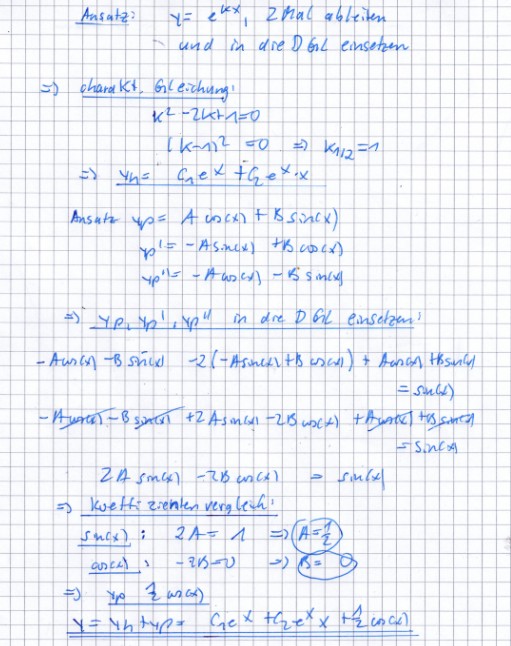 Ansatz: y = e^kx, 2 Mal ableiten
und in die DGL einsetzen
=> charakt. Gleichung:
k² - 2k + 1 = 0
(k-1)² = 0 => k1/2 = 1
=> yh = C1 e^x + C2 e^x · x
Ansatz yp = A cos(x) + B sin(x)
yp' = -A sin(x) + B cos(x)
yp'' = -A cos(x) - B sin(x)
=> yp, yp', yp'' in die DGL einsetzen:
-A cos(x) - B sin(x) -2(-A sin(x) + B cos(x)) + A cos(x) + B sin(x)
= sin(x)
-A cos(x) - B sin(x) + 2A sin(x) - 2B cos(x) + A cos(x) + B sin(x)
= sin(x)
2A sin(x) - 2B cos(x) = sin(x)
=> Koeffizientenvergleich:
sin(x): 2A = 1 => A = 1/2
cos(x): -2B = 0 => B = 0
=> yp 1/2 cos(x)
y = yh + yp = C1 e^x + C2 e^x x + 1/2 cos(x)